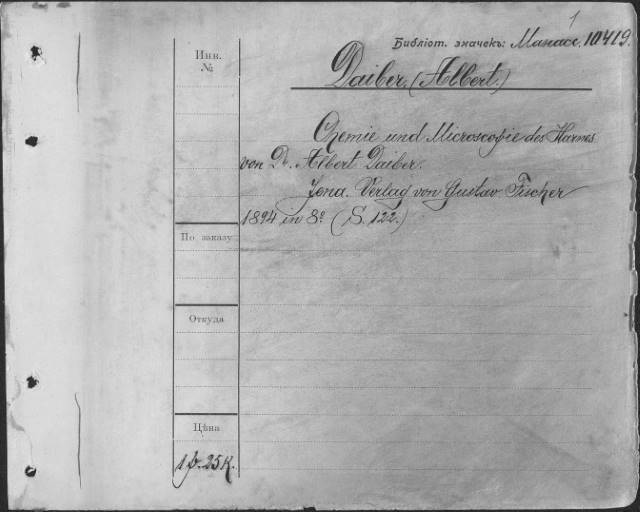 1
Библіот. значекъ: Манасс. 10419.
Инв.
№
Daiber. (Albert.)
Chemie und Microscopie des Harnes
von Dr. Albert Daiber.
Jena. Verlag von Gustav Fischer
1894 in 8º (S. 122.)
По заказу
Откуда
Цѣна
1 р. 25 к.